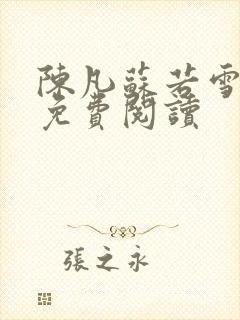 陳凡蘇若雪
免費閱讀
張之永